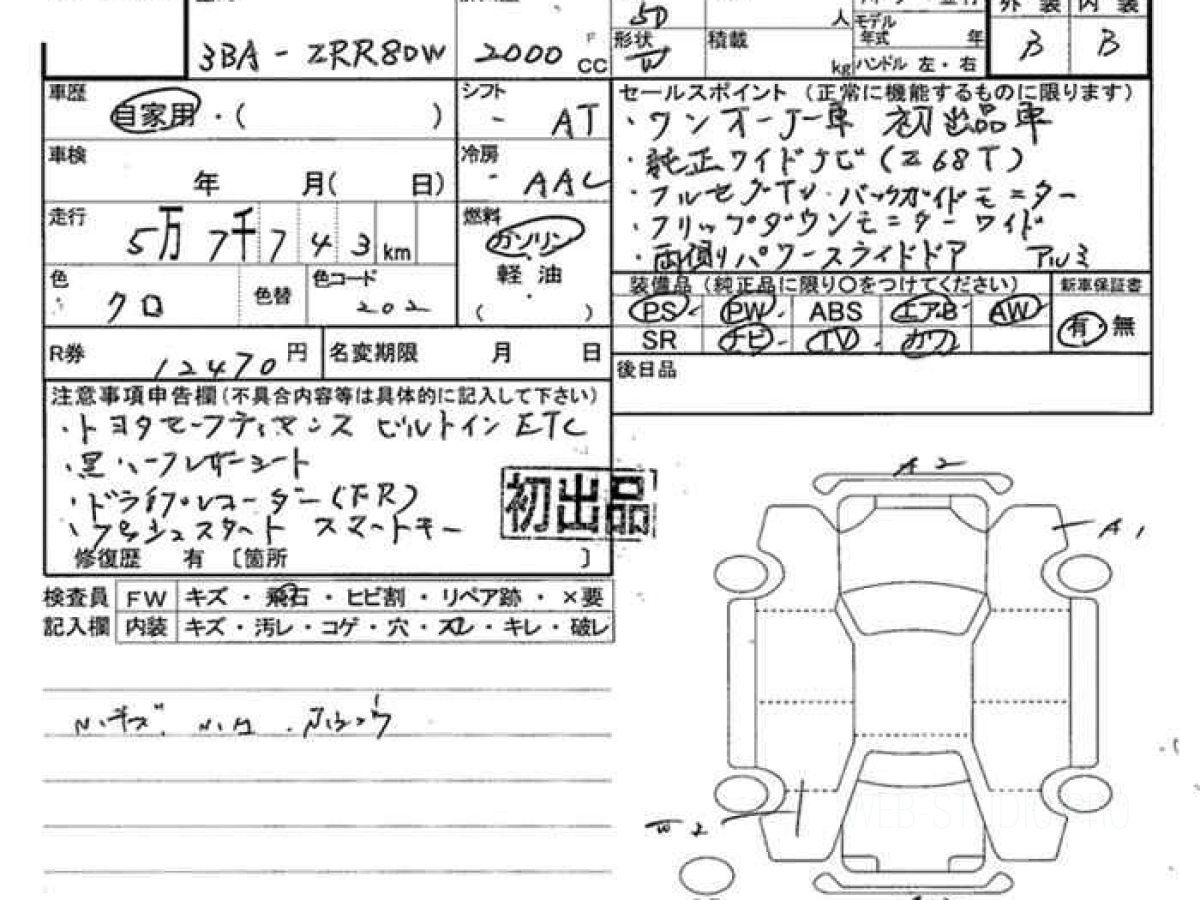 5D
人
モデル
外装 内装
3BA - ZRR80W
2000
F
CC
形状
W
積載
kg
年式 年
ハンドル 左・右
B
B
車歴
自家用・( )
シフト
- AT
セールスポイント (正常に機能するものに限ります)
・ワンオーナー車 初出品車
・純正ワイドナビ(Z68T)
・フルセグTV・バックガイドモニター
・フリップダウンモニター ワイド
・両側パワースライドドア アルミ
車検
年 月( 日)
冷房
- AAC
走行
5万 7千 7 4 3 km
燃料
ガソリン
軽・油
( )
色
クロ
色替
色コード
202
装備品 (純正品に限り○をつけてください)
新車保証書
PS PW ABS エアB AW
有・無
SR ナビ TV カワ
R券
12470 円
名変期限 月 日
後日品
注意事項申告欄(不具合内容等は具体的に記入して下さい)
・トヨタセーフティセンス ビルトインETC
・黒ハーフレザーシート
・ドライブレコーダー(FR)
・プッシュスタート スマートキー
初出品
修復歴 有 〔箇所 〕
検査員 FW キズ・飛石・ヒビ割・リペア跡・×要
記入欄 内装 キズ・汚レ・コゲ・穴・スレ・キレ・破レ
小キズ
A2
A1
W2
WEB-STUDIO.PRO